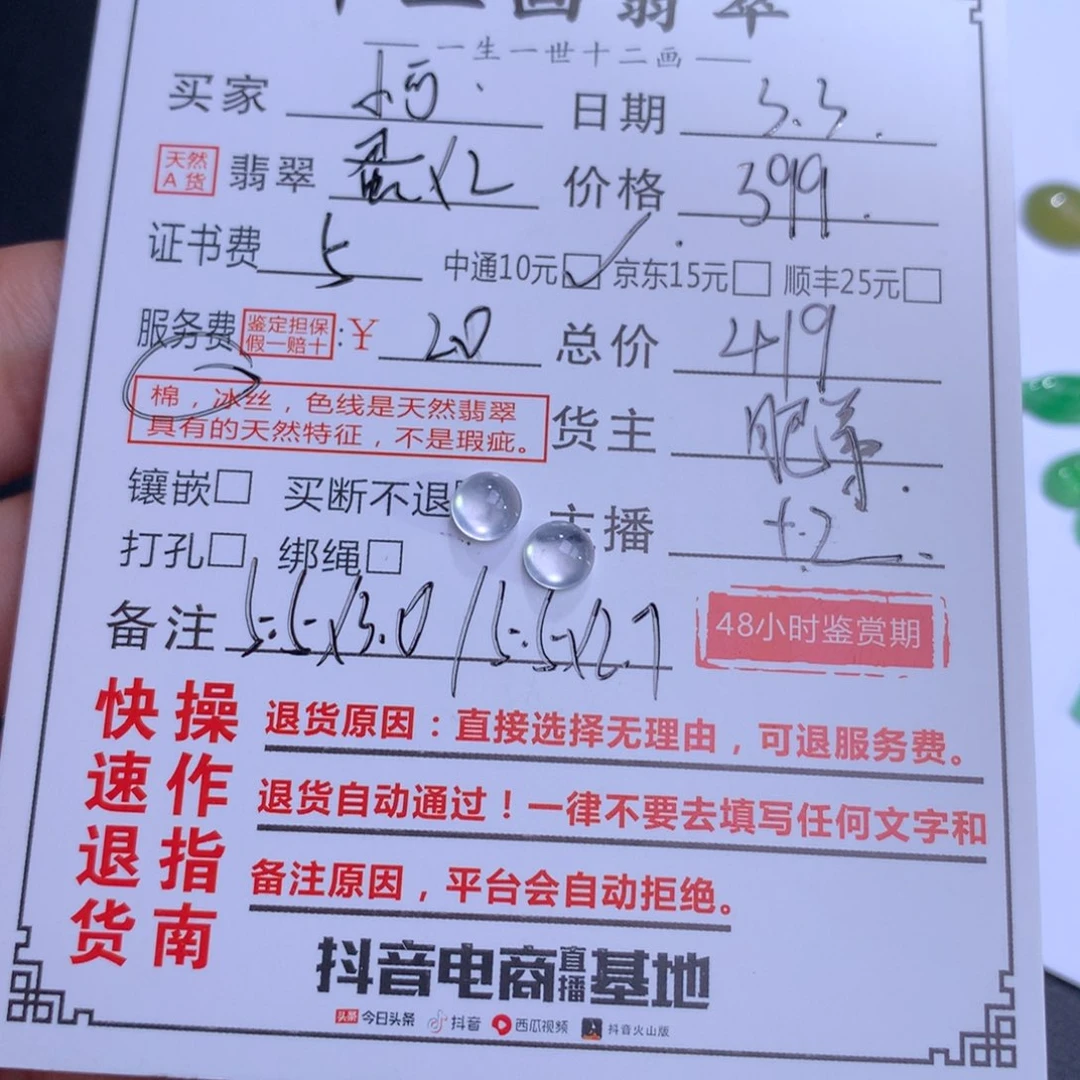 十二画翡翠
一生一世十二画
买家 日期 3.3.
天然A货 翡翠 蛋x2 价格 399.
证书费 5 中通10元☑ 京东15元□ 顺丰25元□
服务费 鉴定担保 假一赔十 :¥ 20 总价 419
棉，冰丝，色线是天然翡翠
具有的天然特征，不是瑕疵。
货主 肥羊.
镶嵌□ 买断不退
主播 +2
打孔□ 绑绳□
备注 5.5x3.0/5.5x2.7
48小时鉴赏期
快速退货
操作指南
退货原因：直接选择无理由，可退服务费。
退货自动通过！一律不要去填写任何文字和
备注原因，平台会自动拒绝。
抖音电商直播基地
头条 今日头条 抖音 西瓜视频 抖音火山版